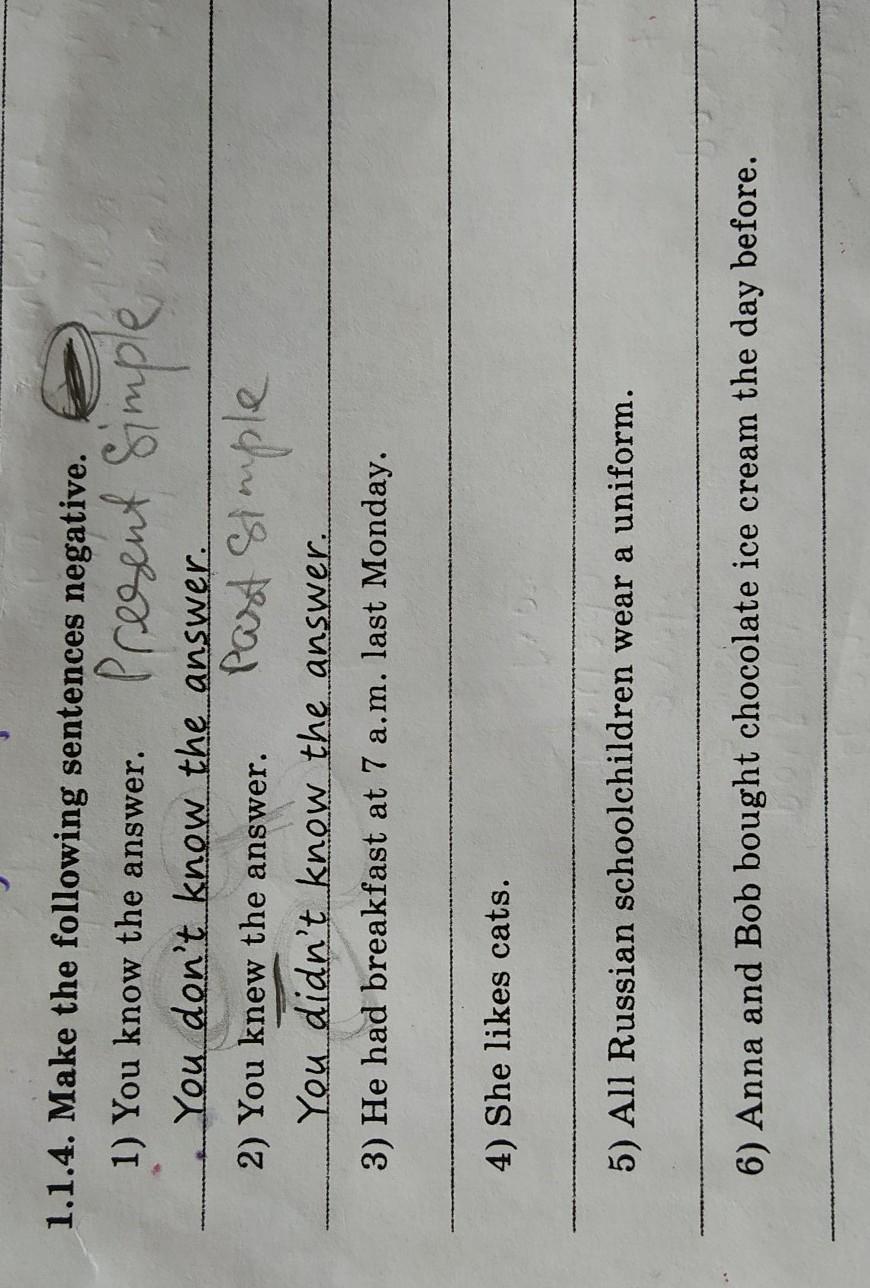 1.1.4. Make the following sentences negative.
1) You know the answer. Present Simple
You don't know the answer.
2) You knew the answer. Past Simple
You didn't know the answer.
3) He had breakfast at 7 a.m. last Monday.
4) She likes cats.
5) All Russian schoolchildren wear a uniform.
6) Anna and Bob bought chocolate ice cream the day before.